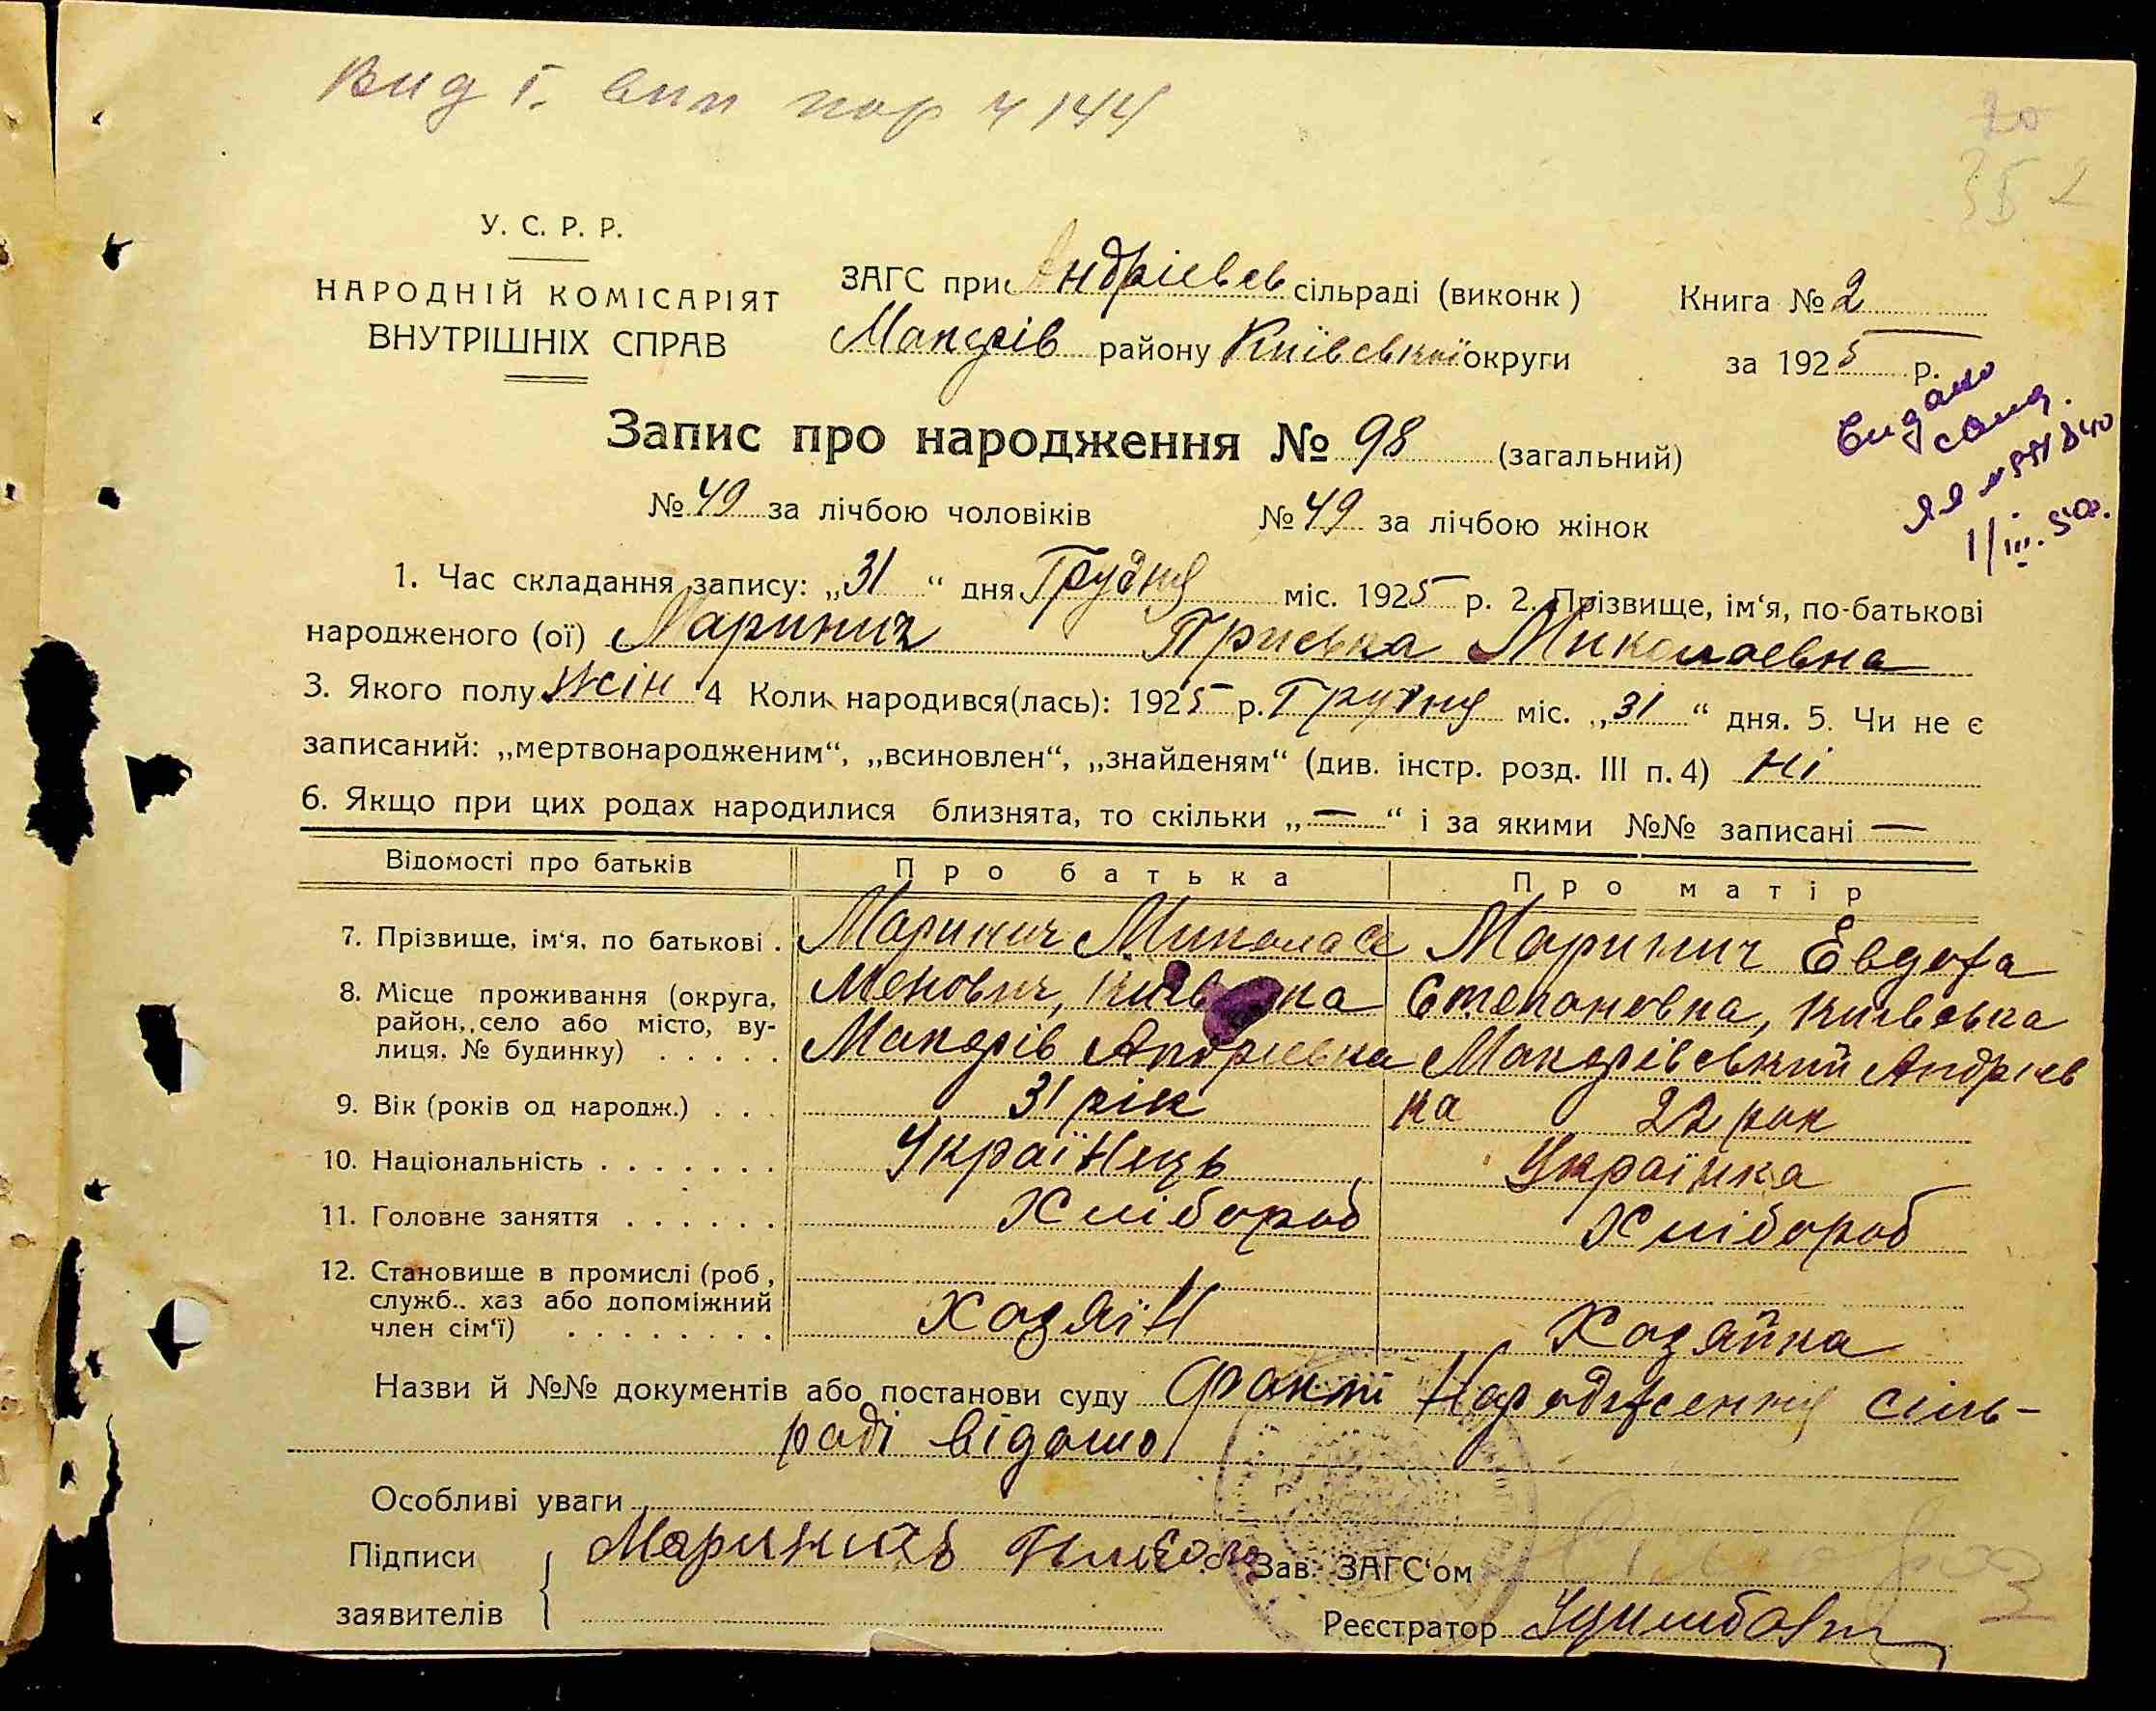 Вид
144
20
352
У. С. Р. Р.
НАРОДНІЙ КОМІСАРІЯТ
ВНУТРІШНІХ СПРАВ
ЗАГС при Андрієвсь сільраді (виконк)
Макарів району Київської округи
Книга № 2
за 1925 р.
Видано
1/III.50.
Запис про народження № 98 (загальний)
№ 49 за лічбою чоловіків № 49 за лічбою жінок
1. Час складання запису: „31“ дня Грудня міс. 1925 р. 2. Прізвище, ім‘я, по-батькові
народженого (ої) Маринич Приська Миколаевна
3. Якого полу жін 4 Коли народився(лась): 1925 р. Грудня міс. „31“ дня. 5. Чи не є
записаний: „мертвонародженим“, „всиновлен“, „знайденям“ (див. інстр. розд. III п. 4) Ні
6. Якщо при цих родах народилися близнята, то скільки „—“ і за якими №№ записані —
Відомості про батьків Про батька Про матір
7. Прізвище, ім‘я, по батькові . Маринич Микола Се Маринич Евдоха
8. Місце проживання (округа, менович, Київська Степановна, Київська
район, село або місто, ву- Макарів Андріевка Макарівський Андріев
лиця. № будинку) . . . . .
9. Вік (років од народж.) . . . 31 рік ка 22 рок
10. Національність . . . . . . . Українець Українка
11. Головне заняття . . . . . . Хлібороб Хлібороб
12. Становище в промислі (роб,
служб.. хаз або допоміжний Хозяїн Хозяйка
член сім‘ї) . . . . . . . .
Назви й №№ документів або постанови суду Факт Народження сіль-
раді відомо
Особливі уваги
Підписи Мариничь Зав. ЗАГС‘ом
заявителів Реєстратор